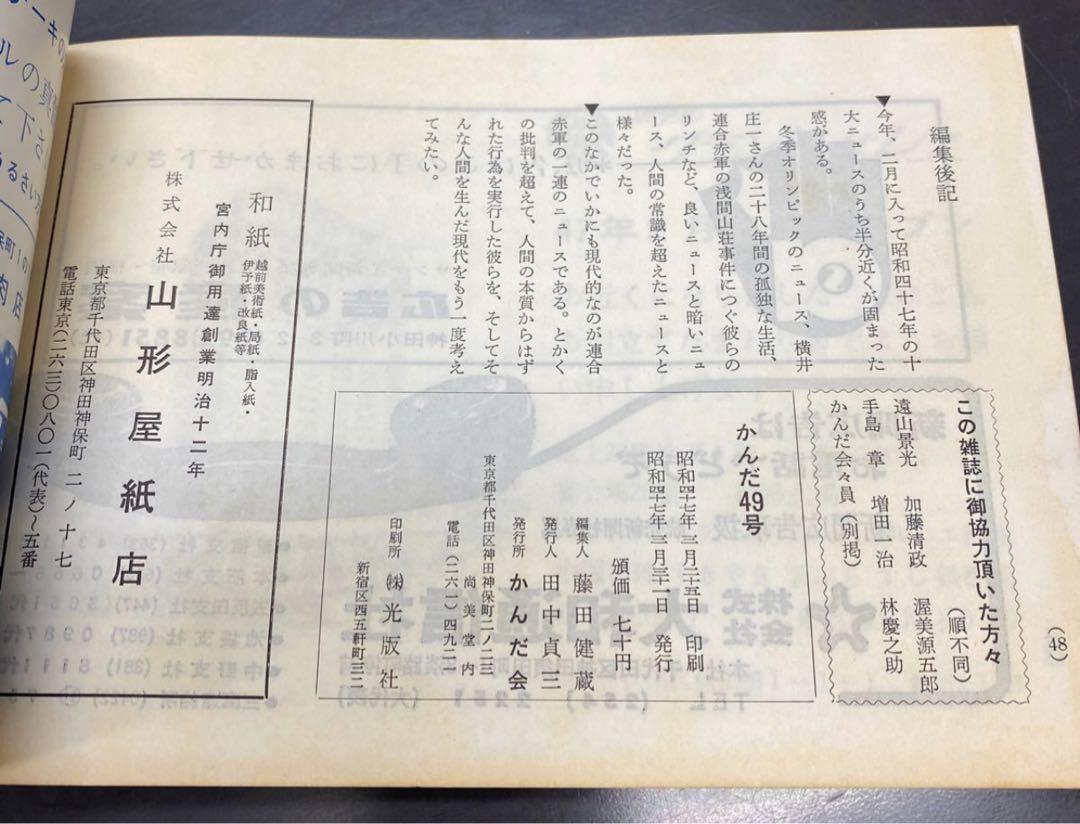 編集後記
▼今年、二月に入って昭和四十七年の十
大ニュースのうち半分近くが固まった
感がある。
冬季オリンピックのニュース、横井
庄一さんの二十八年間の孤独な生活、
連合赤軍の浅間山荘事件につぐ彼らの
リンチなど、良いニュースと暗いニュ
ース、人間の常識を超えたニュースと
様々だった。
▼このなかでいかにも現代的なのが連合
赤軍の一連のニュースである。とかく
の批判を超えて、人間の本質からはず
れた行為を実行した彼らを、そしてそ
んな人間を生んだ現代をもう一度考え
てみたい。
(48)
この雑誌に御協力頂いた方々
(順不同)
遠山景光 加藤清政 渥美源五郎
手島章 増田治 林慶之助
かんだ会々員(別掲)
かんだ49号
昭和四十七年 三月二十五日 印刷
昭和四十七年 三月三十一日 発行
頒価 七十円
編集人 藤田健蔵
発行人 田中貞三
発行所 かんだ会
東京都千代田区神田神保町二ノ二三
尚美堂内
電話(二六一)四九二二
印刷所 ㈱光版社
新宿区西五軒町三二
和紙 越前美術紙・局紙・脂入紙・
伊予紙・改良紙等
宮内庁御用達創業明治十二年
株式会社 山形屋紙店
東京都千代田区神田神保町 二ノ十七
電話東京(二六三)〇八〇一(代表)〜五番